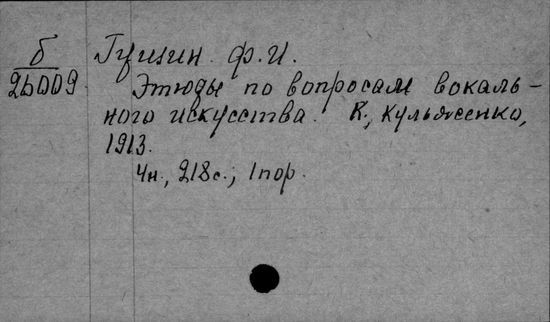 б
26009
Гущин Ф.И.
Этюды по вопросам вокаль-
ного искусства. К., Кульженко,
1913.
4н., 218с., 1 пор.